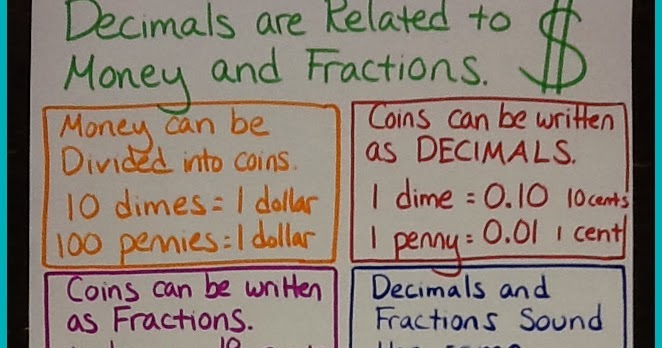 Decimals are Related to $
Money and Fractions.
Money can be
Divided into coins.
10 dimes = 1 dollar
100 pennies = 1 dollar
Coins can be written
as DECIMALS.
1 dime = 0.10 10 cents
1 penny = 0.01 1 cent
Coins can be written
as Fractions.
Decimals and
Fractions Sound